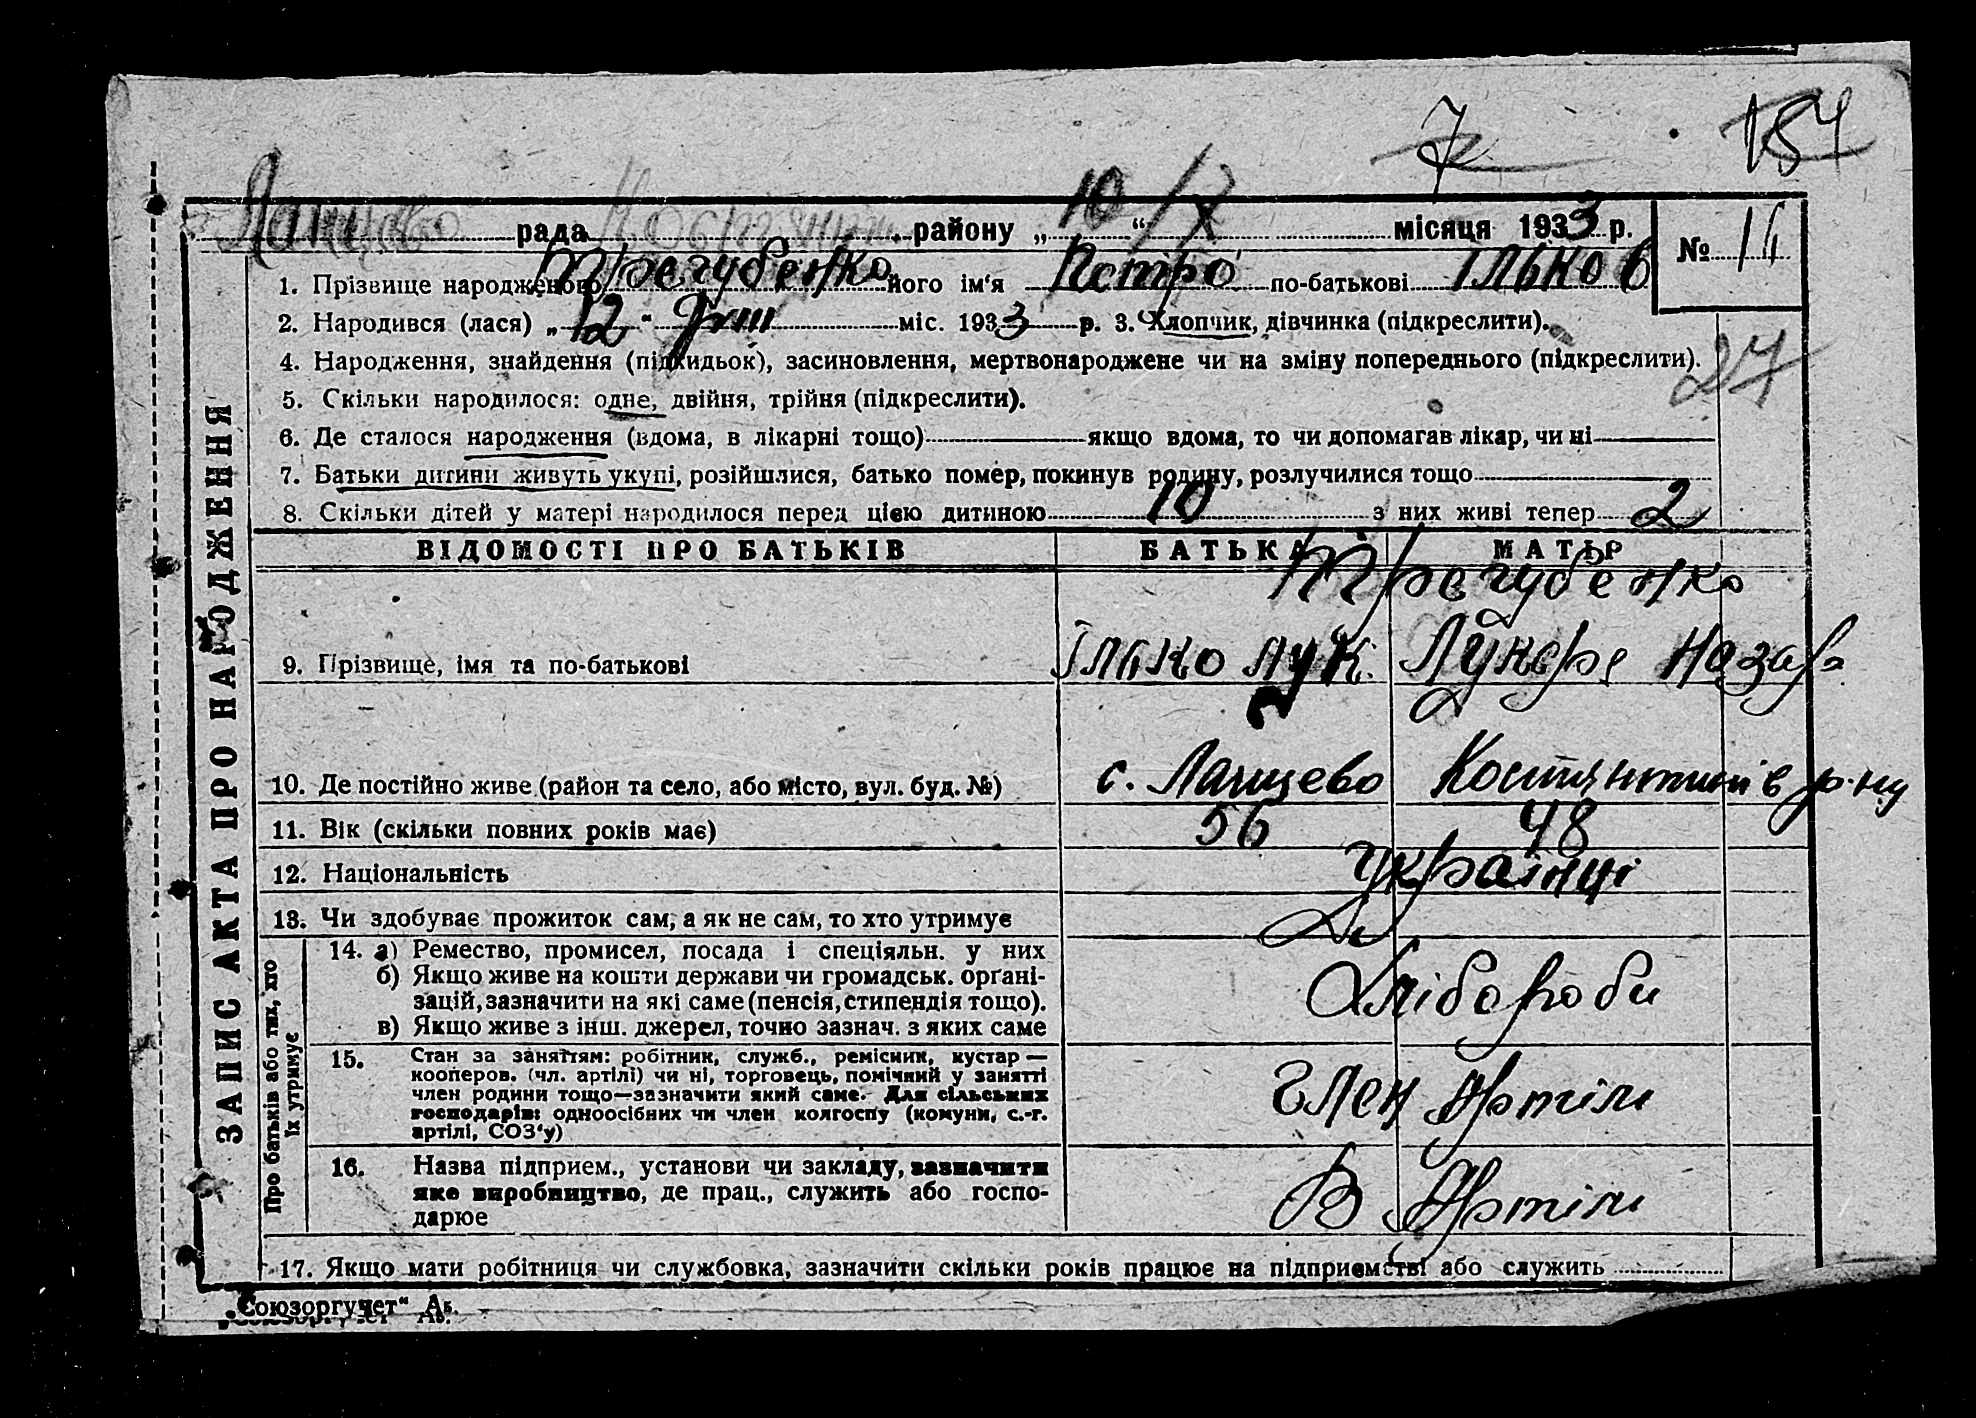 7 154
Ланцево рада району „ 10 “ X місяця 1933 р. № 14
1. Прізвище народженого Трегубенко його ім‘я Петро по-батькові Ільков
2. Народився (лася) „ 12 “ міс. 1933 р. 3. Хлопчик, дівчинка (підкреслити).
4. Народження, знайдення (підкидьок), засиновлення, мертвонароджене чи на зміну попереднього (підкреслити).
27
5. Скільки народилося: одне, двійня, трійня (підкреслити).
6. Де сталося народження (вдома, в лікарні тощо) якщо вдома, то чи допомагав лікар, чи ні
7. Батьки дитини живуть укупі, розійшлися, батько помер, покинув родину, розлучилися тощо
8. Скільки дітей у матері народилося перед цією дитиною 10 з них живі тепер 2
ЗАПИС АКТА ПРО НАРОДЖЕННЯ
ВІДОМОСТІ ПРО БАТЬКІВ БАТЬКА МАТІР
Трегубенко
9. Прізвище, імя та по-батькові Ілько Лук. Лукеря Назар
10. Де постійно живе (район та село, або місто, вул. буд. №) с. Ланцево Костянтинів р-ну
11. Вік (скільки повних років має) 56 48
12. Національність українці
13. Чи здобуває прожиток сам, а як не сам, то хто утримує
Про батьків або тих, хто
їх утримує
14. а) Ремество, промисел, посада і спеціяльн. у них
б) Якщо живе на кошти держави чи громадськ. орґані-
зацій, зазначити на які саме (пенсія, стипендія тощо). Хлібороби
в) Якщо живе з інш. джерел, точно зазнач. з яких саме
15. Стан за заняттям: робітник, служб., ремісник, кустар —
кооперов. (чл. артілі) чи ні, торговець, помічний у занятті
член родини тощо—зазначити який саме. Для сільських
господарів: одноосібних чи член колгоспу (комуни, с.-г.
артілі, СОЗ‘у) член Артілі
16. Назва підприєм., установи чи закладу, зазначити
яке виробництво, де прац., служить або госпо-
дарює В Артілі
17. Якщо мати робітниця чи службовка, зазначити скільки років працює на підприємстві або служить
„Союзоргучет“